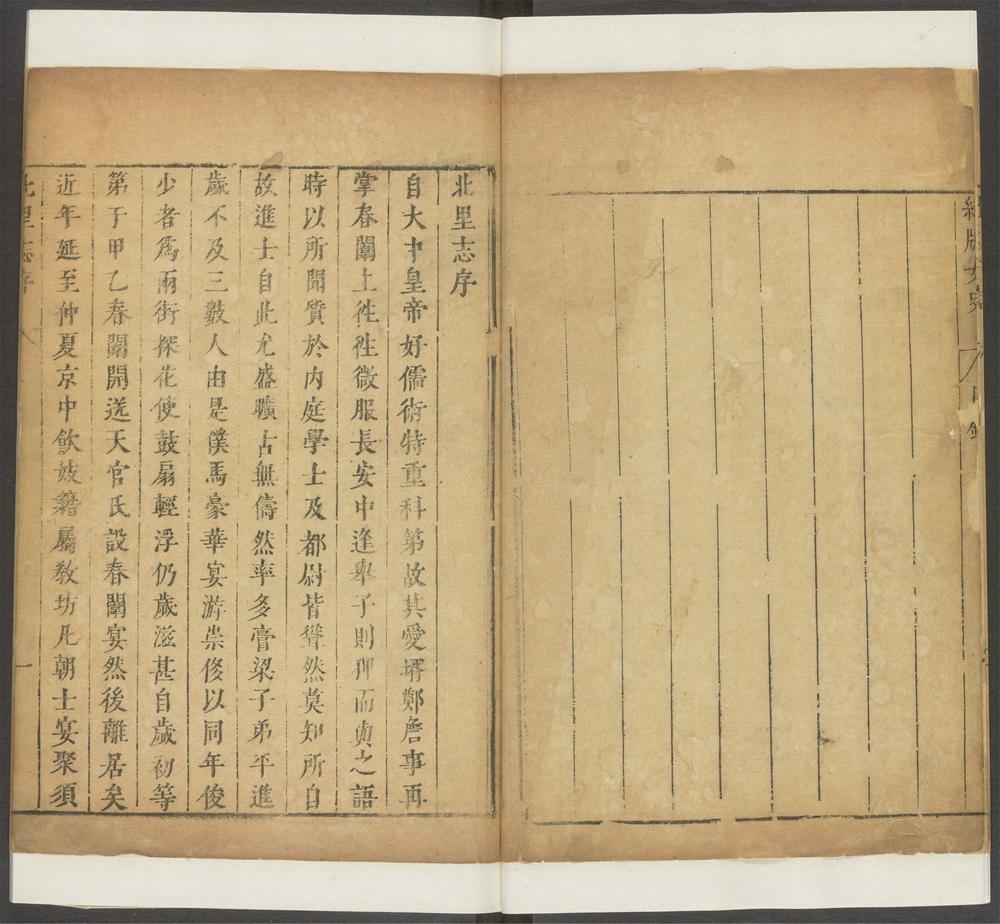 北里志序
自大中皇帝好儒術特重科第故其愛壻鄭詹事再
掌春闈上徃徃微服長安中逢舉子則狎而與之語
時以所聞質於内庭學士及都尉皆聳然莫知所自
故進士自此尤盛曠古無儔然率多膏梁子弟平進
歲不及三數人由是僕馬豪華宴游崇侈以同年俊
少者爲兩街探花使鼓扇輕浮仍歲滋甚自歲初等
第于甲乙春闈開送天官氏設春闈宴然後離居矣
近年延至仲夏京中飲妓籍屬敎坊凡朝士宴聚須
北里志序
一